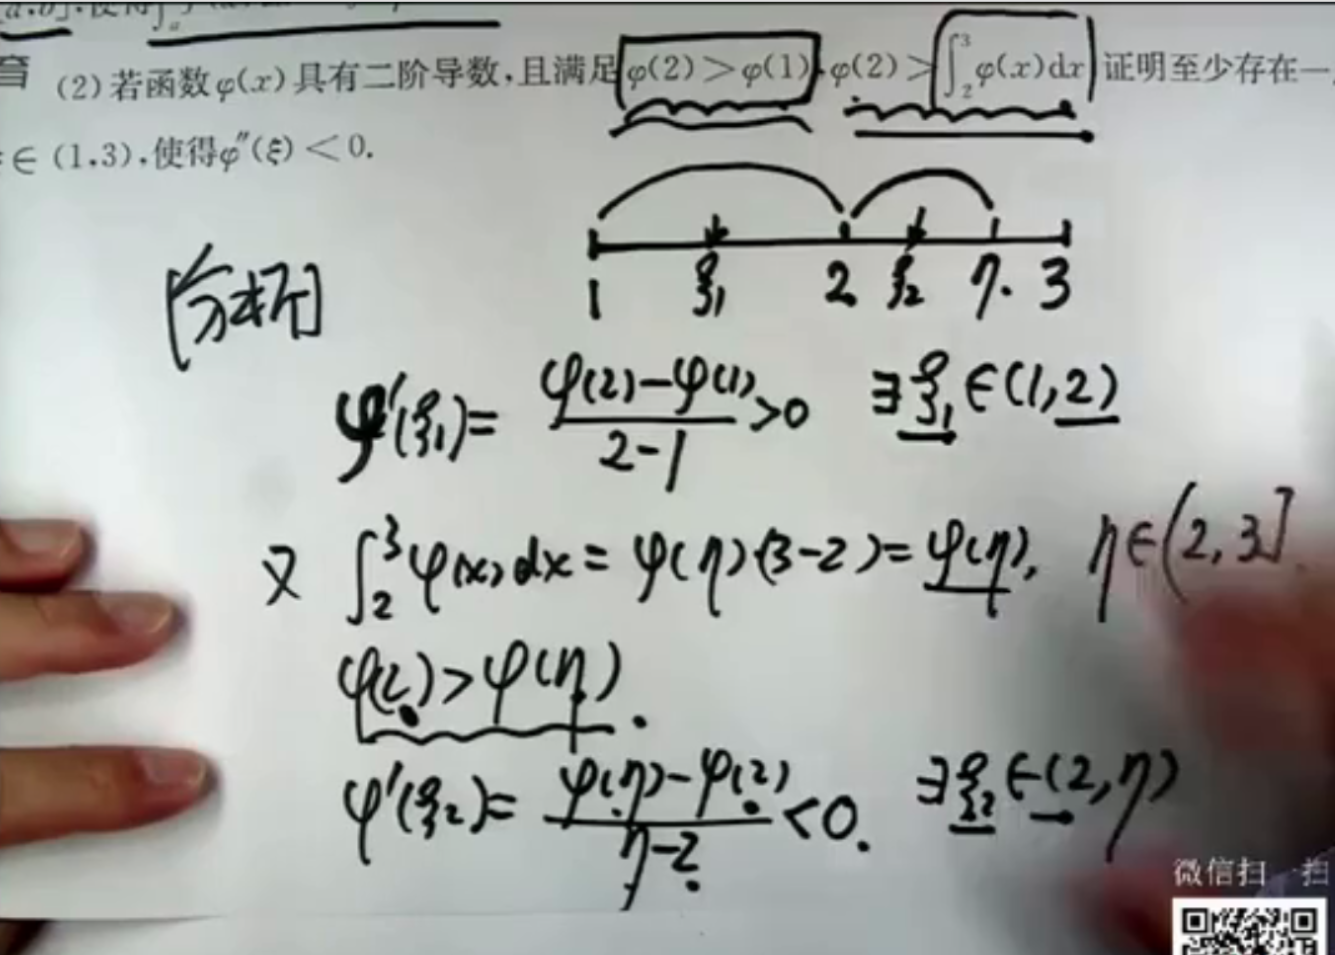 [a,b],使得∫
(2)若函数φ(x)具有二阶导数,且满足φ(2)>φ(1),φ(2)>∫₂³φ(x)dx,证明至少存在一
∈(1,3),使得φ″(ξ)<0.
1 ξ₁ 2 ξ₂ η. 3
[分析]
φ′(ξ₁)= (φ(2)-φ(1))/(2-1) >0 ∃ξ₁∈(1,2)
又 ∫₂³φ(x)dx=φ(η)·(3-2)=φ(η), η∈(2,3].
φ(2)>φ(η).
φ′(ξ₂)= (φ(η)-φ(2))/(η-2) <0. ∃ξ₂∈(2,η)
微信扫一扫